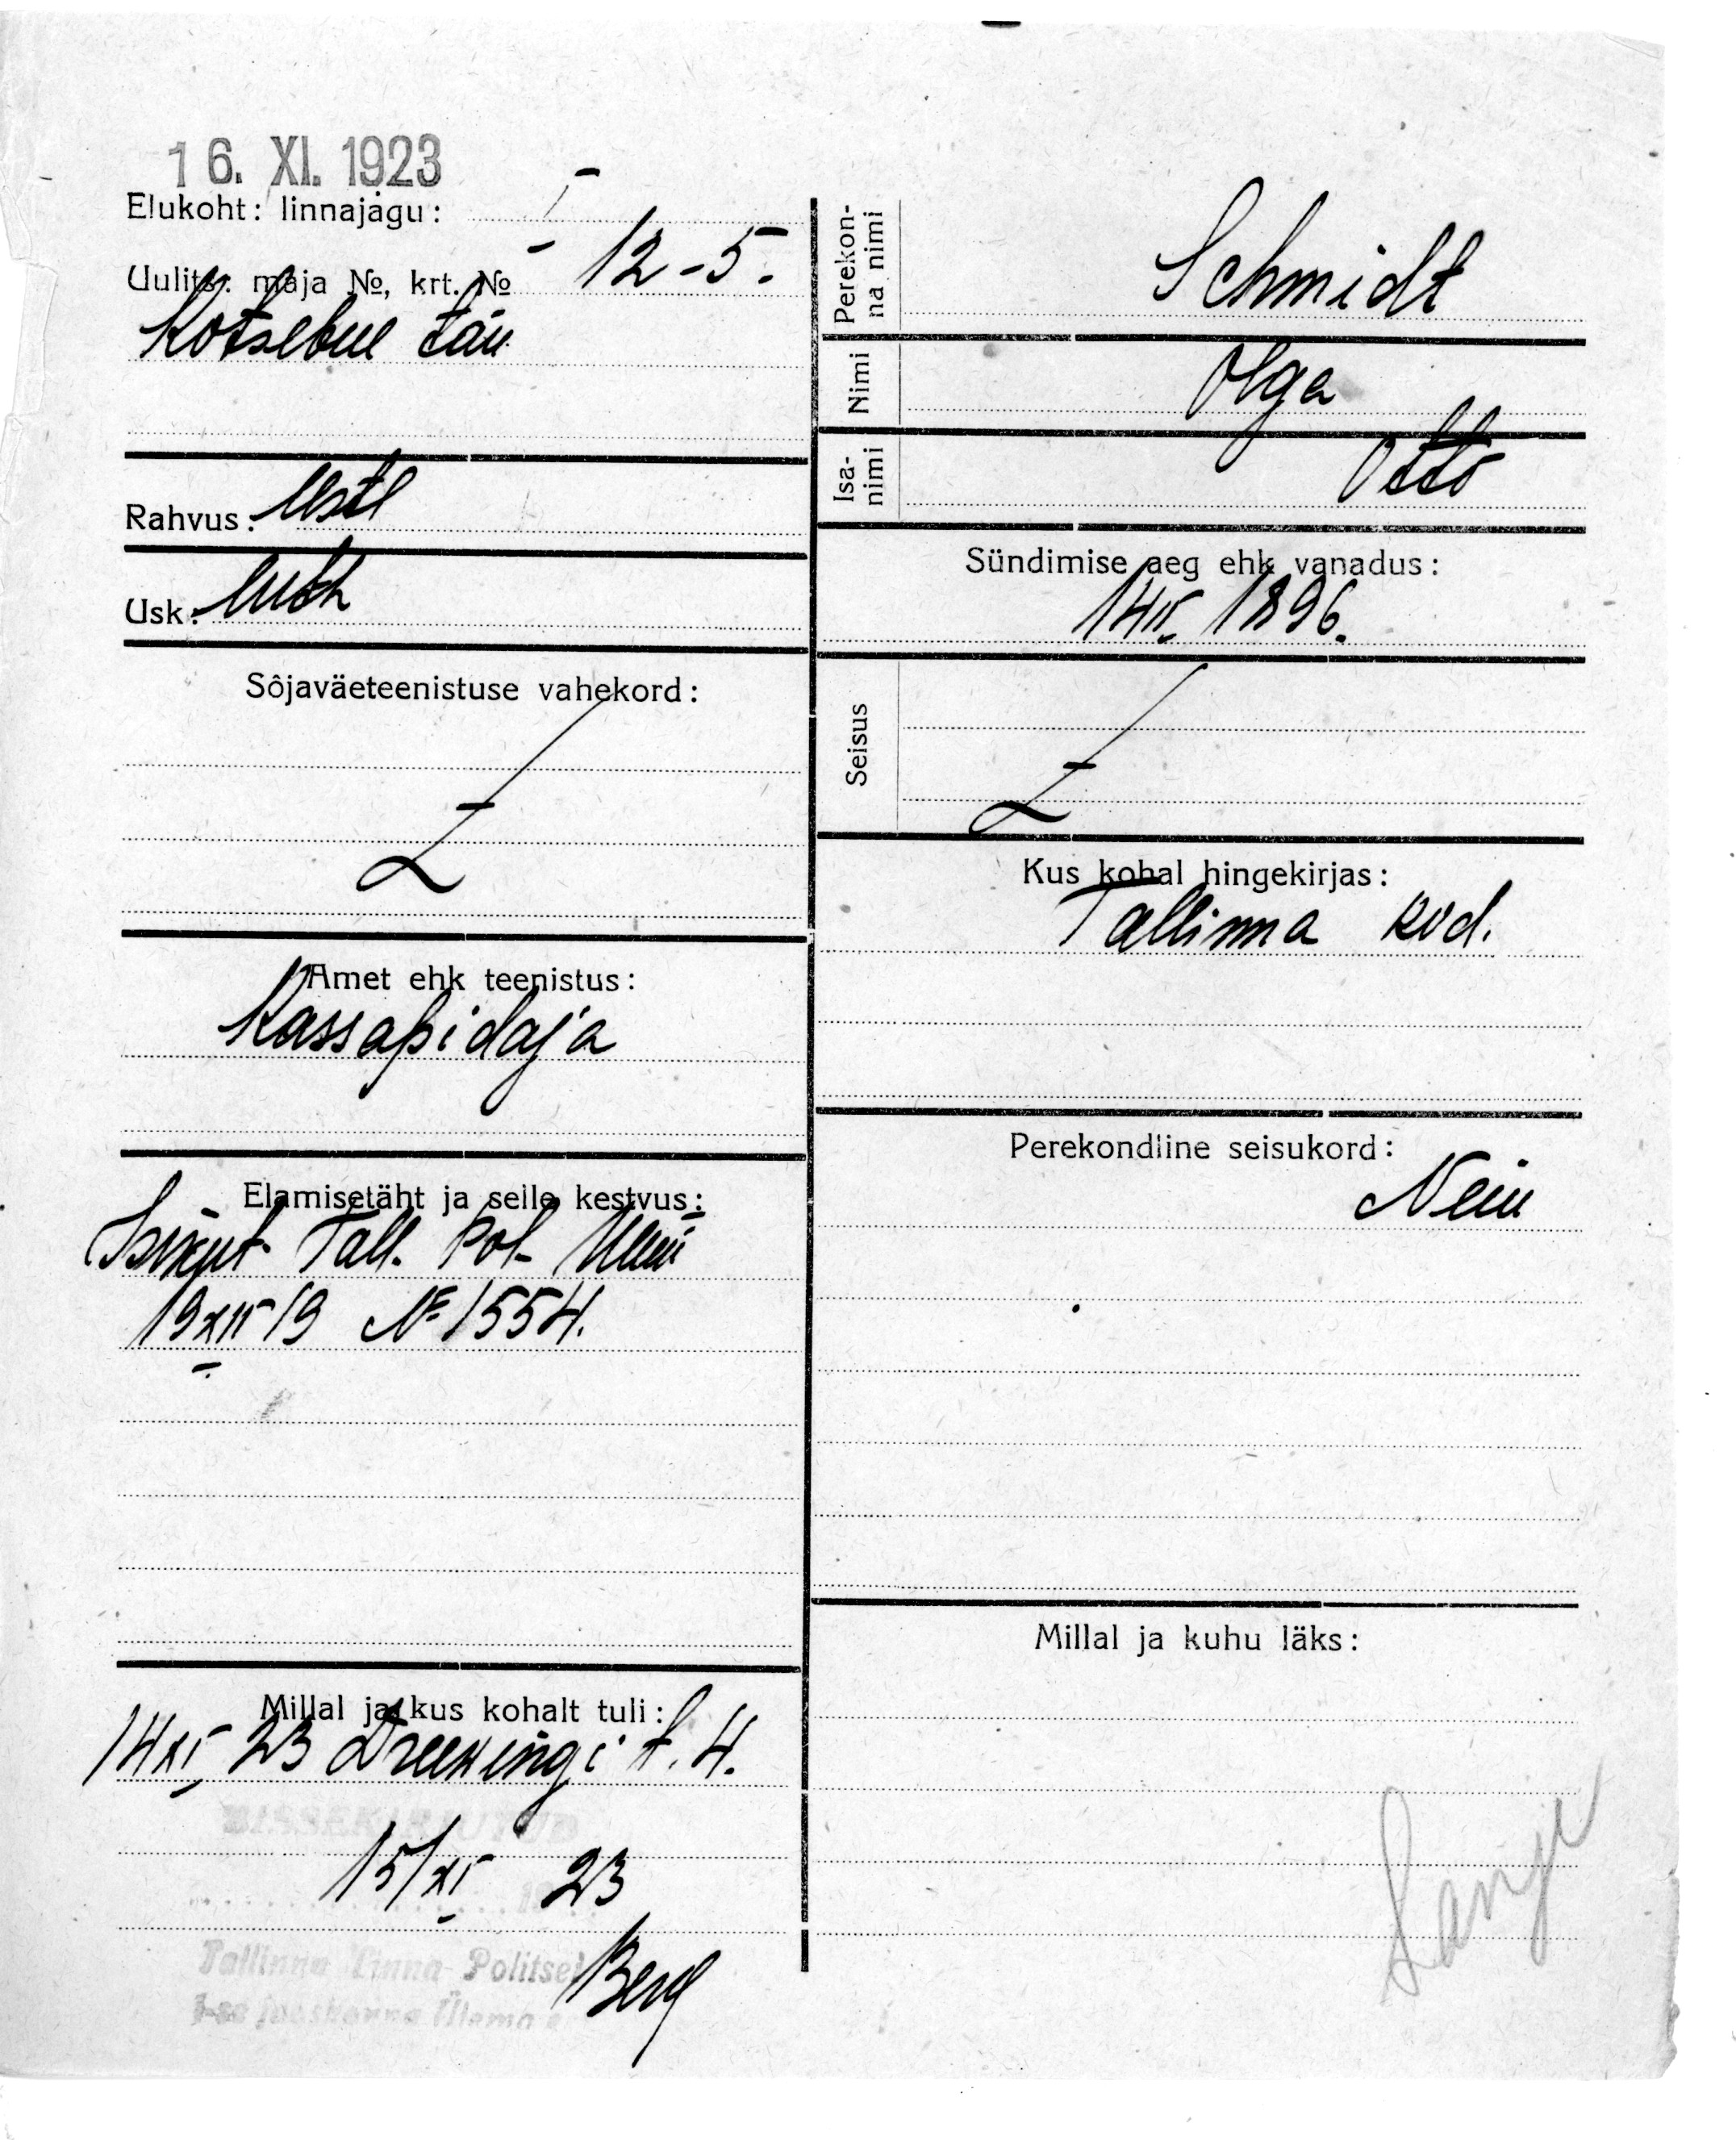 16. XI. 1923
Elukoht: linnajagu: I
Uulits: maja №, krt. № 12-5.
Kotsebue tän
Rahvus: Eesti
Usk: luth
Sôjaväeteenistuse vahekord:
Amet ehk teenistus:
Kassapidaja
Elamisetäht ja selle kestvus:
Isikut. Tall. Pol. Ülem
19 XII 19 № 1554.
Millal ja kus kohalt tuli:
14 XI 23 t. 4.
SISSEKIRJUTUD
15/XI 23
Tallinna Linna Politsei
I-se jaoskonna Ülema
Berg
Perekonna nimi
Schmidt
Nimi
Olga
Isanimi
Otto
Sündimise aeg ehk vanadus:
1896.
Seisus
Kus kohal hingekirjas:
Tallinna kod.
Perekondline seisukord:
Neiu
Millal ja kuhu läks: